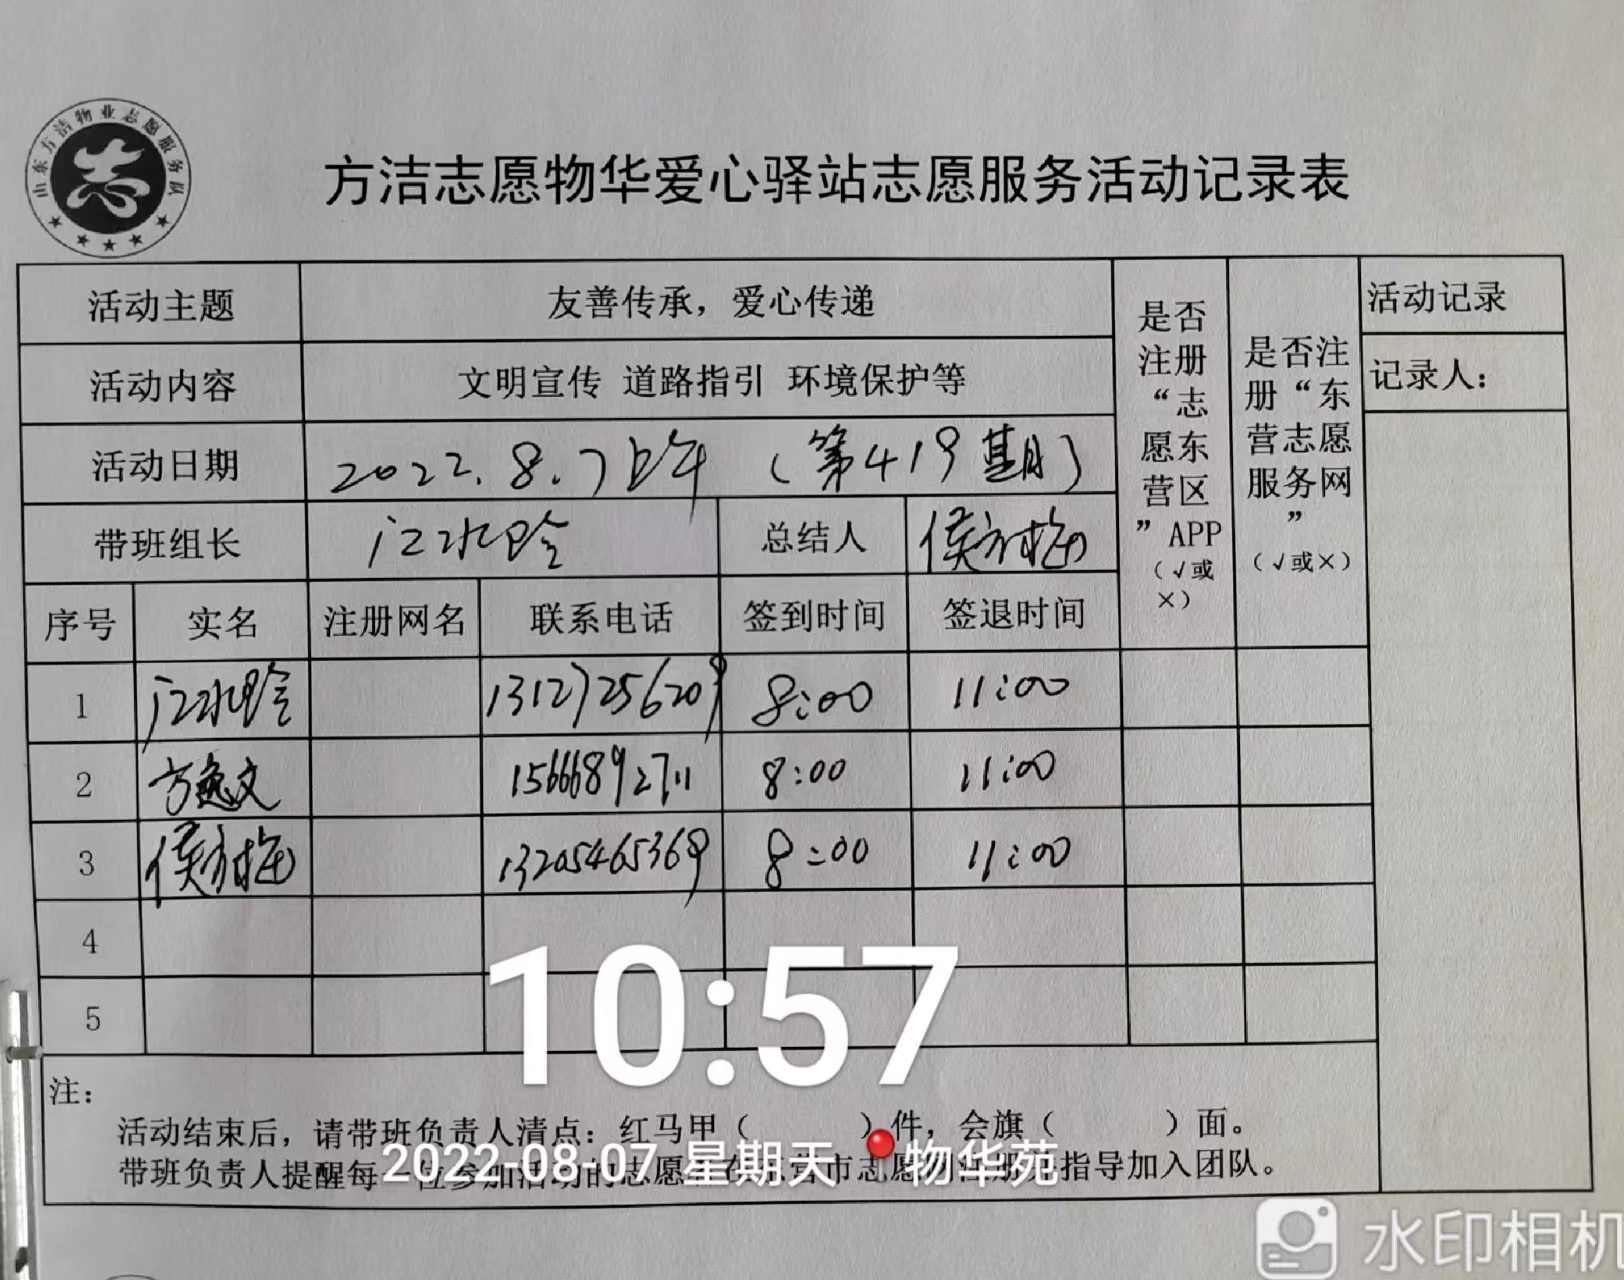 山东方洁物业志愿服务队
志
方洁志愿物华爱心驿站志愿服务活动记录表
活动主题 友善传承，爱心传递
活动内容 文明宣传 道路指引 环境保护等
活动日期 2022.8.7上午（第419期）
带班组长 江水玲 总结人
是否注册“志愿东营区”APP（√或×）
是否注册“东营志愿服务网”（√或×）
活动记录
记录人：
序号 实名 注册网名 联系电话 签到时间 签退时间
1 江水玲 13127256209 8:00 11:00
2 方逸文 15666892711 8:00 11:00
3 13205465369 8:00 11:00
4
5
注：
活动结束后，请带班负责人清点：红马甲（ ）件，会旗（ ）面。
带班负责人提醒每一位参加活动的志愿者在东营市志愿 指导加入团队。
10:57
2022-08-07 星期天 物华苑
水印相机